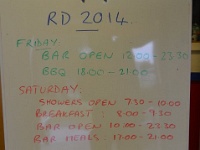 RD 2014.
FRIDAY
BAR OPEN 12:00 - 23:30
BBQ 18:00 - 21:00
SATURDAY:
SHOWERS OPEN 7:30 - 10:00
BREAKFAST : 8:00 - 9:30
BAR OPEN 10:30 - 23:30
BAR MEALS : 17:00 - 21:00